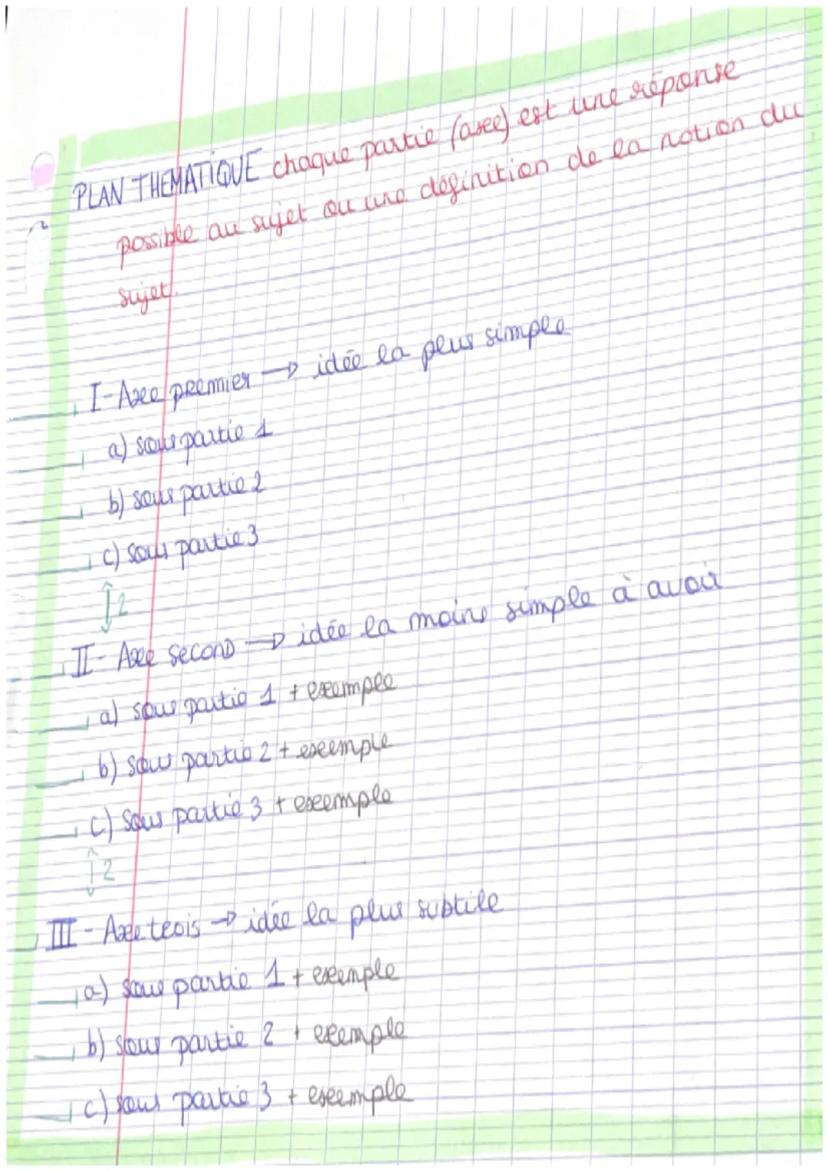 PLAN THEMATIQUE chaque partie (axe) est une réponse
possible au sujet ou une définition de la notion du
sujet.
I - Axe premier → idée la plus simple
a) sous partie 1
b) sous partie 2
c) sous partie 3
↕ 2
II - Axe second → idée la moins simple à avoir
a) sous partie 1 + exemple
b) sous partie 2 + exemple
c) sous partie 3 + exemple
↕ 2
III - Axe trois → idée la plus subtile
a) sous partie 1 + exemple
b) sous partie 2 + exemple
c) sous partie 3 + exemple